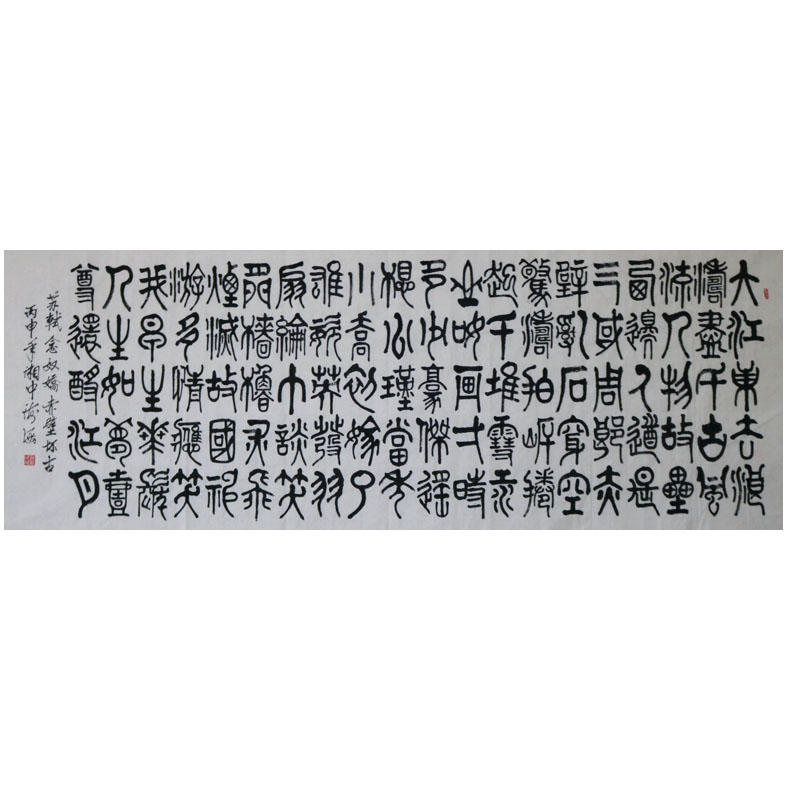 大江東去浪
濤盡千古風
流人物故壘
西邊人道是
三或周郎赤
壁亂石穿空
驚濤拍岸捲
起千堆雪江
山如畫弌時
多少豪傑遥
想公瑾當年
小喬初嫁了
雄姿英發羽
扇綸巾談笑
間檣櫓灰飛
煙滅故國神
游多情應笑
我早生華髮
人生如夢壹
尊還酹江月
苏軾念奴嬌赤壁怀古
丙申年湘中